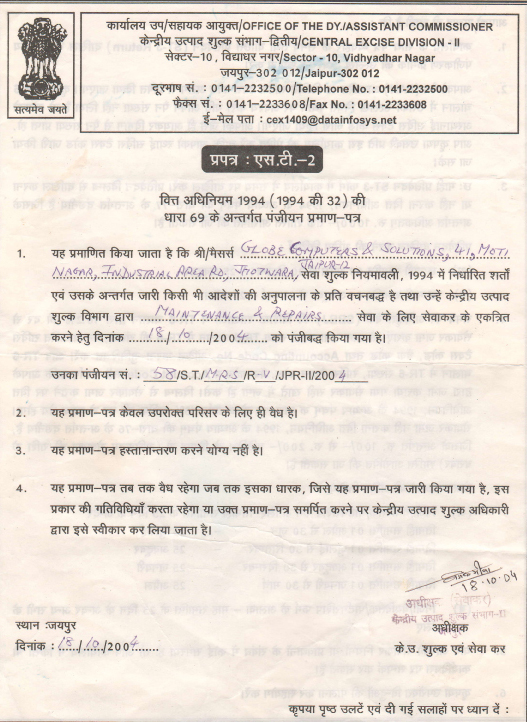 कार्यालय उप/सहायक आयुक्त/OFFICE OF THE DY./ASSISTANT COMMISSIONER
केन्द्रीय उत्पाद शुल्क संभाग–द्वितीय/CENTRAL EXCISE DIVISION - II
सेक्टर–10 , विद्याधर नगर/Sector - 10, Vidhyadhar Nagar
जयपुर–302 012/Jaipur-302 012
दूरभाष सं. : 0141–2232500/Telephone No. : 0141-2232500
फैक्स सं. : 0141–2233608/Fax No. : 0141-2233608
ई–मेल पता : cex1409@datainfosys.net
सत्यमेव जयते
प्रपत्र : एस.टी.–2
वित्त अधिनियम 1994 (1994 की 32) की
धारा 69 के अन्तर्गत पंजीयन प्रमाण–पत्र
1. यह प्रमाणित किया जाता है कि श्री/मैसर्स GLOBE COMPUTERS & SOLUTIONS, 41, MOTI
NAGAR, INDUSTRIAL AREA RD, JHOTWARA, JAIPUR-12 सेवा शुल्क नियमावली, 1994 में निर्धारित शर्तो
एवं उसके अन्तर्गत जारी किसी भी आदेशों की अनुपालना के प्रति वचनबद्ध है तथा उन्हें केन्द्रीय उत्पाद
शुल्क विभाग द्वारा MAINTENANCE & REPAIRS सेवा के लिए सेवाकर के एकत्रित
करने हेतु दिनांक 18/10/2004 को पंजीबद्ध किया गया है।
उनका पंजीयन सं. : 58/S.T/MRS/R-V/JPR-II/2004
2. यह प्रमाण–पत्र केवल उपरोक्त परिसर के लिए ही वैध है।
3. यह प्रमाण–पत्र हस्तानान्तरण करने योग्य नहीं है।
4. यह प्रमाण–पत्र तब तक वैध रहेगा जब तक इसका धारक, जिसे यह प्रमाण–पत्र जारी किया गया है, इस
प्रकार की गतिविधियाँ करता रहेगा या उक्त प्रमाण–पत्र समर्पित करने पर केन्द्रीय उत्पाद शुल्क अधिकारी
द्वारा इसे स्वीकार कर लिया जाता है।
18.10.04
अधीक्षक
केन्द्रीय उत्पाद शुल्क संभाग-II
स्थान :जयपुर
अधीक्षक
दिनांक : 18/10/2004
के.उ. शुल्क एवं सेवा कर
कृपया पृष्ठ उलटें एवं दी गई सलाहों पर ध्यान दें :